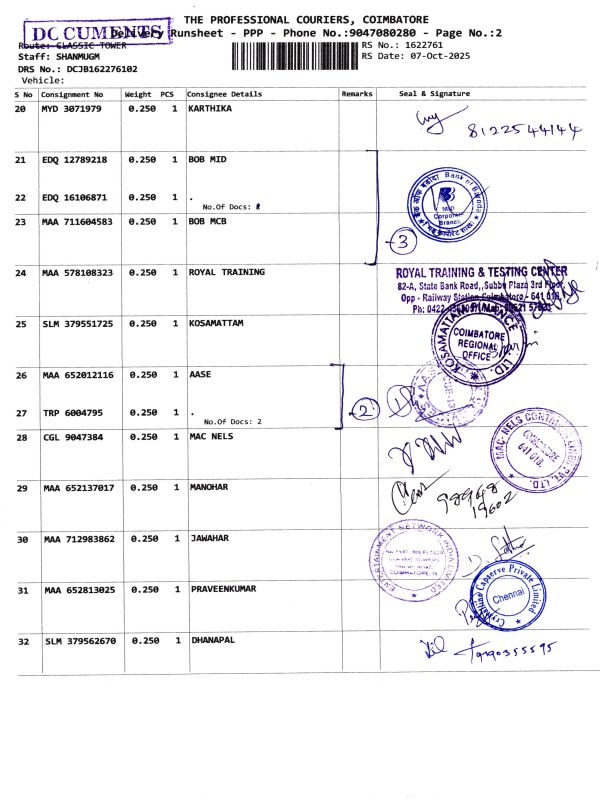 THE PROFESSIONAL COURIERS, COIMBATORE
DC CUMENTS
Delivery Runsheet - PPP - Phone No.:9047080280 - Page No.:2
Route: CLASSIC TOWER
RS No.: 1622761
Staff: SHANMUGM
RS Date: 07-Oct-2025
DRS No.: DCJB162276102
Vehicle:
S No Consignment No Weight PCS Consignee Details Remarks Seal & Signature
20 MYD 3071979 0.250 1 KARTHIKA
8122544144
21 EDQ 12789218 0.250 1 BOB MID
Bank of Baroda
बैंक ऑफ़ बड़ौदा
Mid
Corporate
Branch
22 EDQ 16106871 0.250 1 .
No.Of Docs:
23 MAA 711604583 0.250 1 BOB MCB
3
24 MAA 578108323 0.250 1 ROYAL TRAINING
ROYAL TRAINING & TESTING CENTER
82-A, State Bank Road, Subbu Plaza 3rd Floor,
Opp - Railway Station, Coimbatore - 641 018.
Ph: 0422
25 SLM 379551725 0.250 1 KOSAMATTAM
KOSAMATTAM FINANCE LTD.
COIMBATORE
REGIONAL
OFFICE
26 MAA 652012116 0.250 1 AASE
27 TRP 6004795 0.250 1 .
No.Of Docs: 2
2
28 CGL 9047384 0.250 1 MAC NELS
COIMBATORE
641 018.
29 MAA 652137017 0.250 1 MANOHAR
98948
19602
30 MAA 712983862 0.250 1 JAWAHAR
ENTERTAINMENT NETWORK INDIA LIMITED
31 MAA 652813025 0.250 1 PRAVEENKUMAR
Crystalline Capserve Private Limited
Chennai
32 SLM 379562670 0.250 1 DHANAPAL